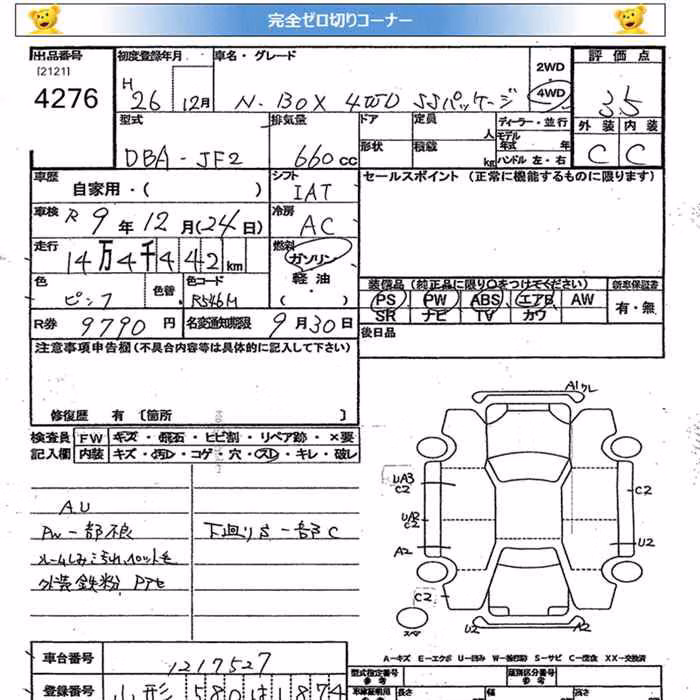 完全ゼロ切りコーナー
出品番号 初度登録年月 車名・グレード 評価点
[2121]
4276 H 26 12月 N-BOX 4WD SSパッケージ 2WD 4WD 3.5
型式 排気量 ドア 定員 人 ディーラー・並行 外装 内装
モデル年式 年
DBA-JF2 660cc 形状 積載 kg ハンドル 左・右 C C
車歴 シフト セールスポイント (正常に機能するものに限ります)
自家用・( ) IAT
車検 R 9年12月(24日) 冷房 AC
走行 14万4千442km 燃料 ガソリン
軽油
( )
色 ピンク 色替 色コード R546M
装備品 (純正品に限り○をつけてください) 新車保証書
PS PW ABS エアB AW 有・無
SR ナビ TV カワ
R券 9790円 名変通知期限 9月30日 後日品
注意事項申告欄(不具合内容等は具体的に記入して下さい)
修復歴 有 [箇所 ]
検査員 FW キズ・飛石・ヒビ割・リペア跡・×要
記入欄 内装 キズ・汚れ・コゲ・穴・スレ・キレ・破レ
AU
PW一部根 下廻りS一部C
外装鉄粉
A1 クレ
UA3
C2
C2
UA2
C2
A2
U2
C2
スペア
U2
A2
A-キズ E-エクボ U-凹み S-サビ C-腐食 XX-交換済
車台番号 1217527
型式指定番号 類別区分番号
参考 参考
登録番号 山形580は1874
長さ 幅 高さ